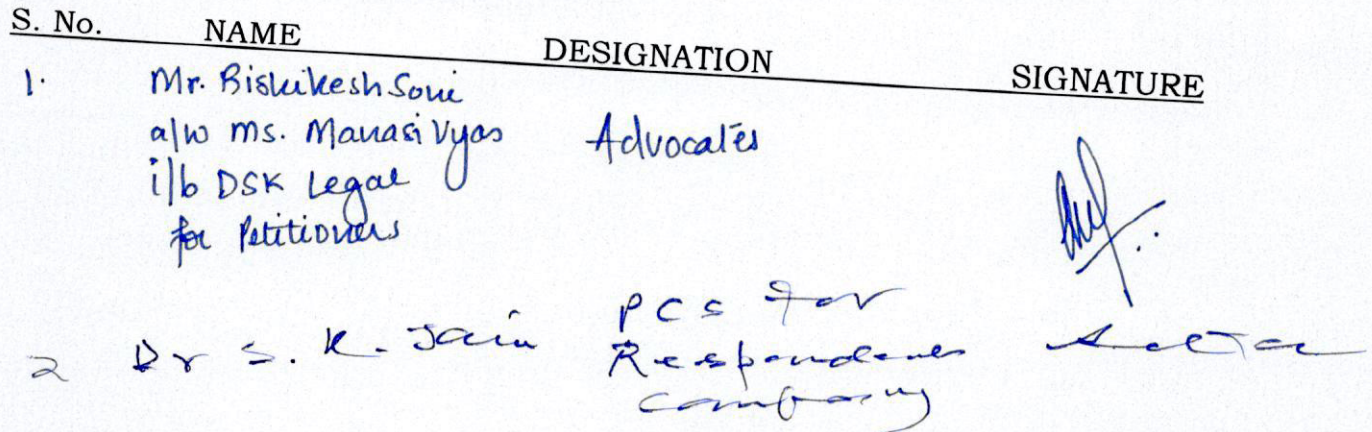 S. No. NAME DESIGNATION SIGNATURE
1. Mr. Rishikesh Soni
a/w ms. Manasi Vyas Advocates
i/b DSK Legal
for Petitioners
2 Dr S. K. Jain PCS for
Respondents
Company